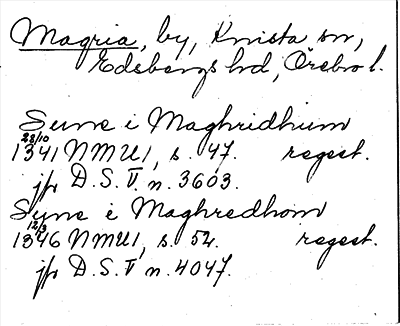 Magria, by, Knista sn,
Edsbergs hd, Örebro l.
Sune i Maghridhum
28/10
1341 NMU1, s. 47. regest.
jfr D.S. V. n. 3603.
Syne i Maghredhom
12/3
1346 NMU1, s. 52. regest.
jfr D.S. V, n. 4047.